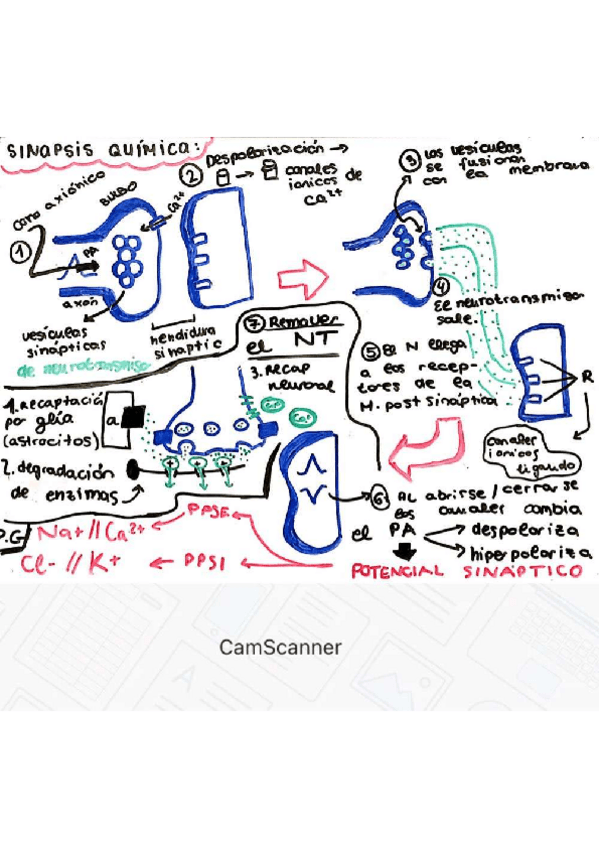 SINAPSIS QUÍMICA:
cono axiónico
BULBO
1
PA
axón
vesículas
sinápticas
de neurotransmiso
hendidura
sinaptic
Ca²⁺
2 Despolarización →
→ canales
ionicos de
Ca²⁺
3 Las vesículas
se fusionan
con la membrana
4
El neurotransmisor
sale.
5 El N llega
a los recep-
tores de la
M. post sináptica
R
canales
ionicos
ligando
6 AL abrirse / cerrarse
los canales cambia
el PA → despolariza
→ hiperpolariza
POTENCIAL SINÁPTICO
7 Remover
el NT
1. recaptació
por glía
(astrocitos)
a
2. degradación
de enzimas
3. Recap
neuronal
P.G/ Na+//Ca²⁺ ← PPSE
Cl- // K+ ← PPSI
CamScanner